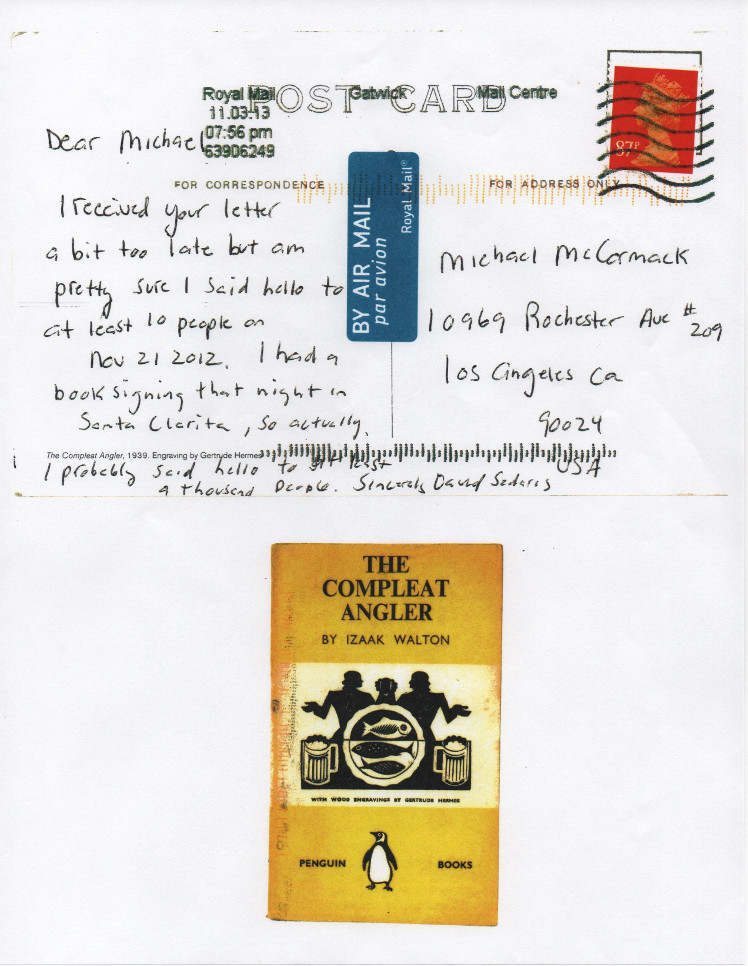 Royal Mail Gatwick Mail Centre
POST CARD
11.03.13
07:56 pm
63906249
87P
Dear Michael
FOR CORRESPONDENCE
FOR ADDRESS ONLY
BY AIR MAIL
par avion
Royal Mail®
I received your letter
a bit too late but am
pretty sure I said hello to
at least 10 people on
Nov 21 2012. I had a
book signing that night in
Santa Clarita, so actually,
I probably said hello to at least
a thousand people. Sincerely David Sedaris
Michael McCormack
10969 Rochester Ave #
209
Los Angeles Ca
90024
USA
The Compleat Angler, 1939. Engraving by Gertrude Hermes
THE
COMPLEAT
ANGLER
BY IZAAK WALTON
WITH WOOD ENGRAVINGS BY GERTRUDE HERMES
PENGUIN BOOKS